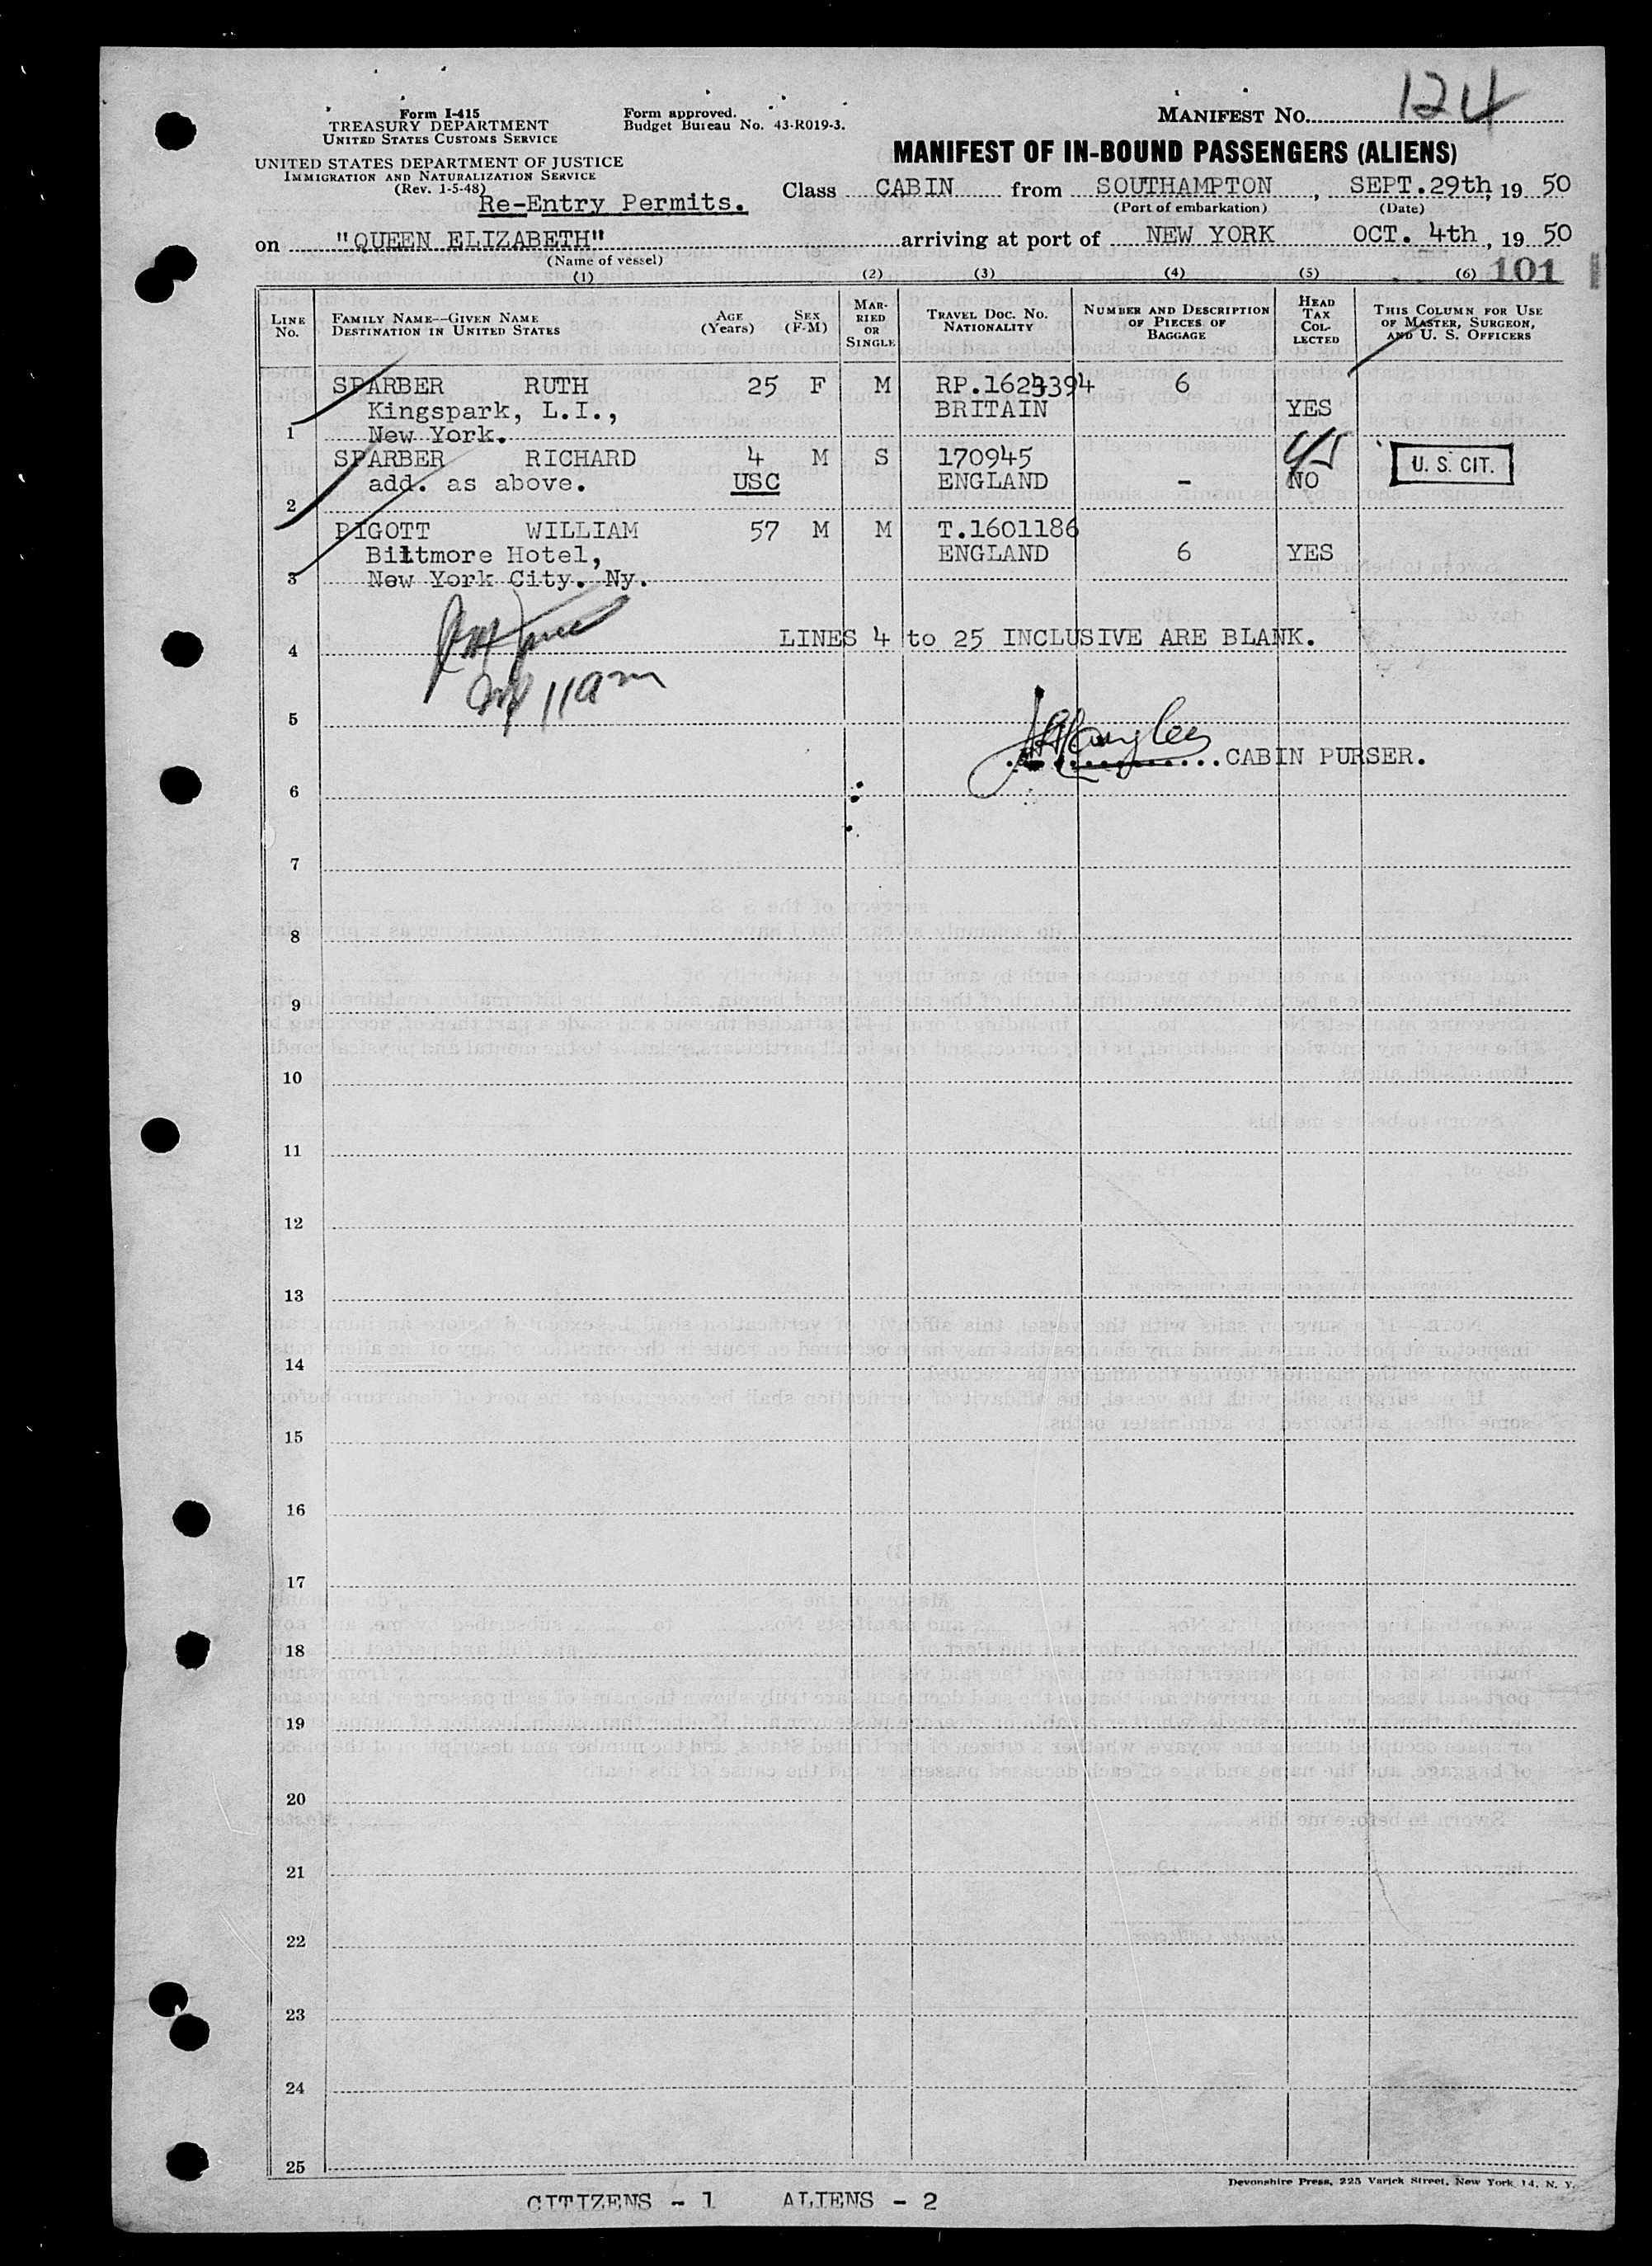 124
Form I-415
TREASURY DEPARTMENT
UNITED STATES CUSTOMS SERVICE
Form approved.
Budget Bureau No. 43-R019-3.
MANIFEST NO.
UNITED STATES DEPARTMENT OF JUSTICE
IMMIGRATION AND NATURALIZATION SERVICE
(Rev. 1-5-48)
MANIFEST OF IN-BOUND PASSENGERS (ALIENS)
Re-Entry Permits.
Class CABIN from SOUTHAMPTON, SEPT.29th, 19 50
(Port of embarkation) (Date)
on "QUEEN ELIZABETH" arriving at port of NEW YORK OCT. 4th, 19 50
(Name of vessel)
(1) (2) (3) (4) (5) (6) 101
LINE No. FAMILY NAME—GIVEN NAME DESTINATION IN UNITED STATES AGE (Years) SEX (F-M) MARRIED OR SINGLE TRAVEL DOC. NO. NATIONALITY NUMBER AND DESCRIPTION OF PIECES OF BAGGAGE HEAD TAX COLLECTED THIS COLUMN FOR USE OF MASTER, SURGEON, AND U. S. OFFICERS
SPARBER RUTH 25 F M 6
Kingspark, L.I., BRITAIN YES
1 New York.
SPARBER RICHARD 4 M S 170945 U. S. CIT.
add. as above. USC ENGLAND - NO
2
PIGOTT WILLIAM 57 M M T.1601186
Biltmore Hotel, ENGLAND 6 YES
3 New York City. Ny.
LINES 4 to 25 INCLUSIVE ARE BLANK.
4
11am
5
CABIN PURSER.
6
7
8
9
10
11
12
13
14
15
16
17
18
19
20
21
22
23
24
25
Devonshire Press, 225 Varick Street, New York 14, N. Y.
CITIZENS - 1 ALIENS - 2